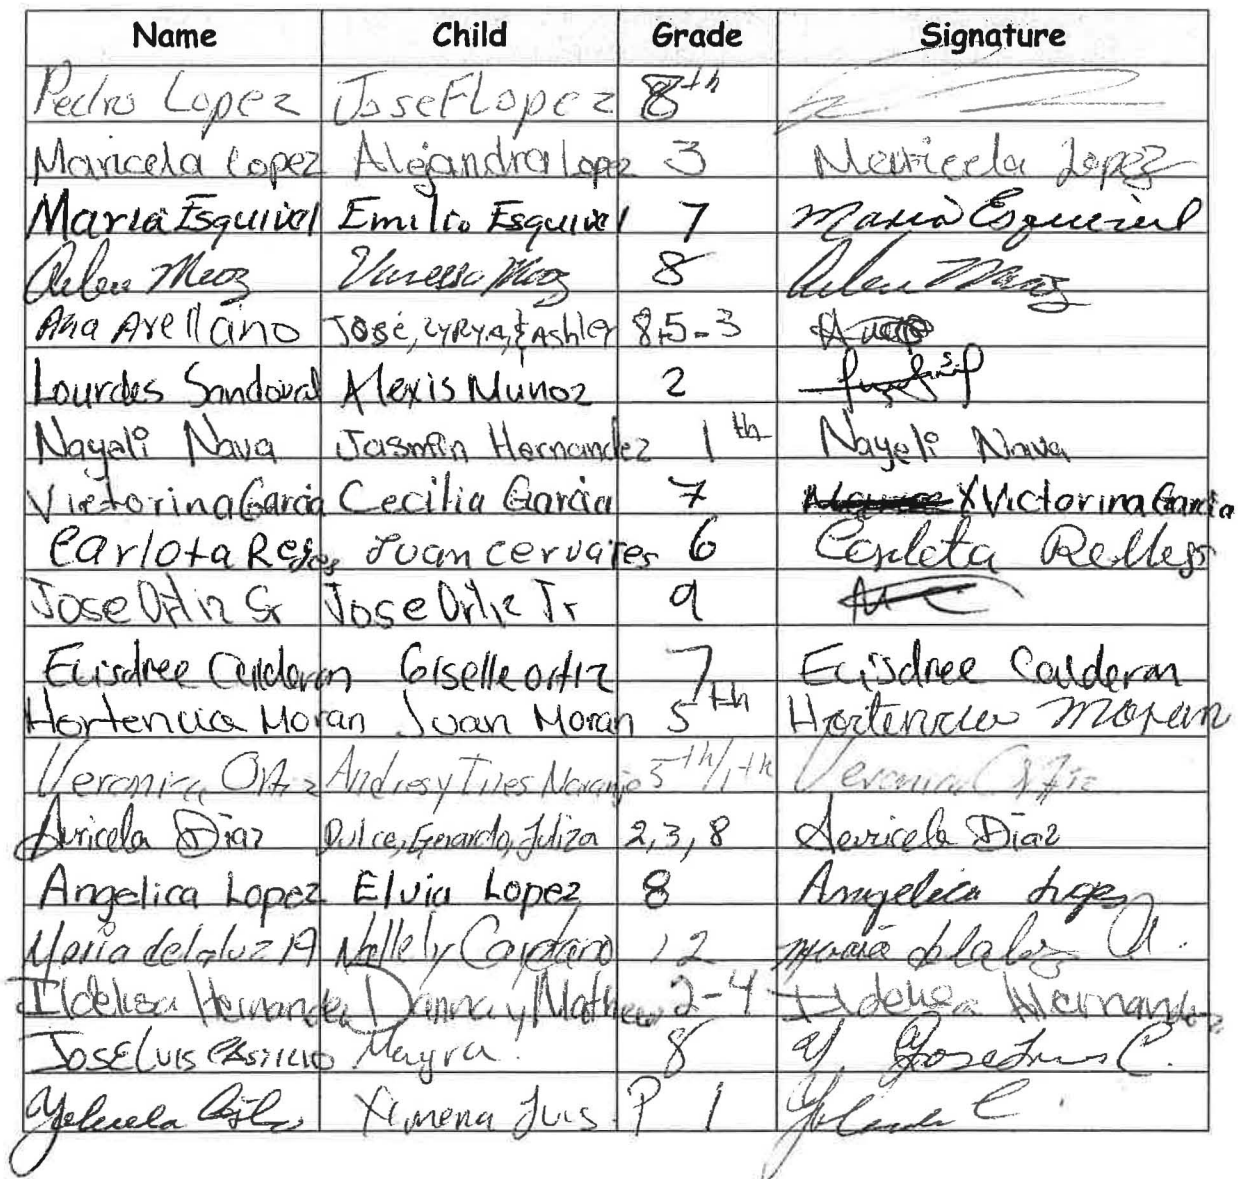 Name Child Grade Signature
Pedro Lopez Jose F Lopez 8th
Maricela Lopez Alejandra Lopez 3 Maricela Lopez
Maria Esquivel Emilio Esquivel 7 Maria Esquivel
Arlen Meoz Vanessa 8 Arlen
Ana Arellano José, & Ashley 8,5-3
Lourdes Sandoval Alexis Munoz 2
Nayeli Nava Jasmin Hernandez 1th Nayeli Nava
Victorina Garcia Cecilia Garcia 7 X Victorina Garcia
Carlota Juan cervates 6 Carlota
Jose Ortiz Sr Jose Ortiz Jr 9
Calderon Giselle ortiz 7 Calderon
Hortencia Moran Juan Moran 5th Hortencia Moran
Veronica Ortiz Andres y Naranjo 5th/1th Veronica Ortiz
Auricela Diaz Dulce, Gerardo, Juliza 2,3,8 Auricela Diaz
Angelica Lopez Elvia Lopez 8 Angelica Lopez
Maria de la luz A 12 Maria de la luz A.
Ildelisa Hernandez Danna y Mathew 2-4 Hernandez
JOSE LUIS Mayra 8 Jose Luis C.
Ximena Luis P 1